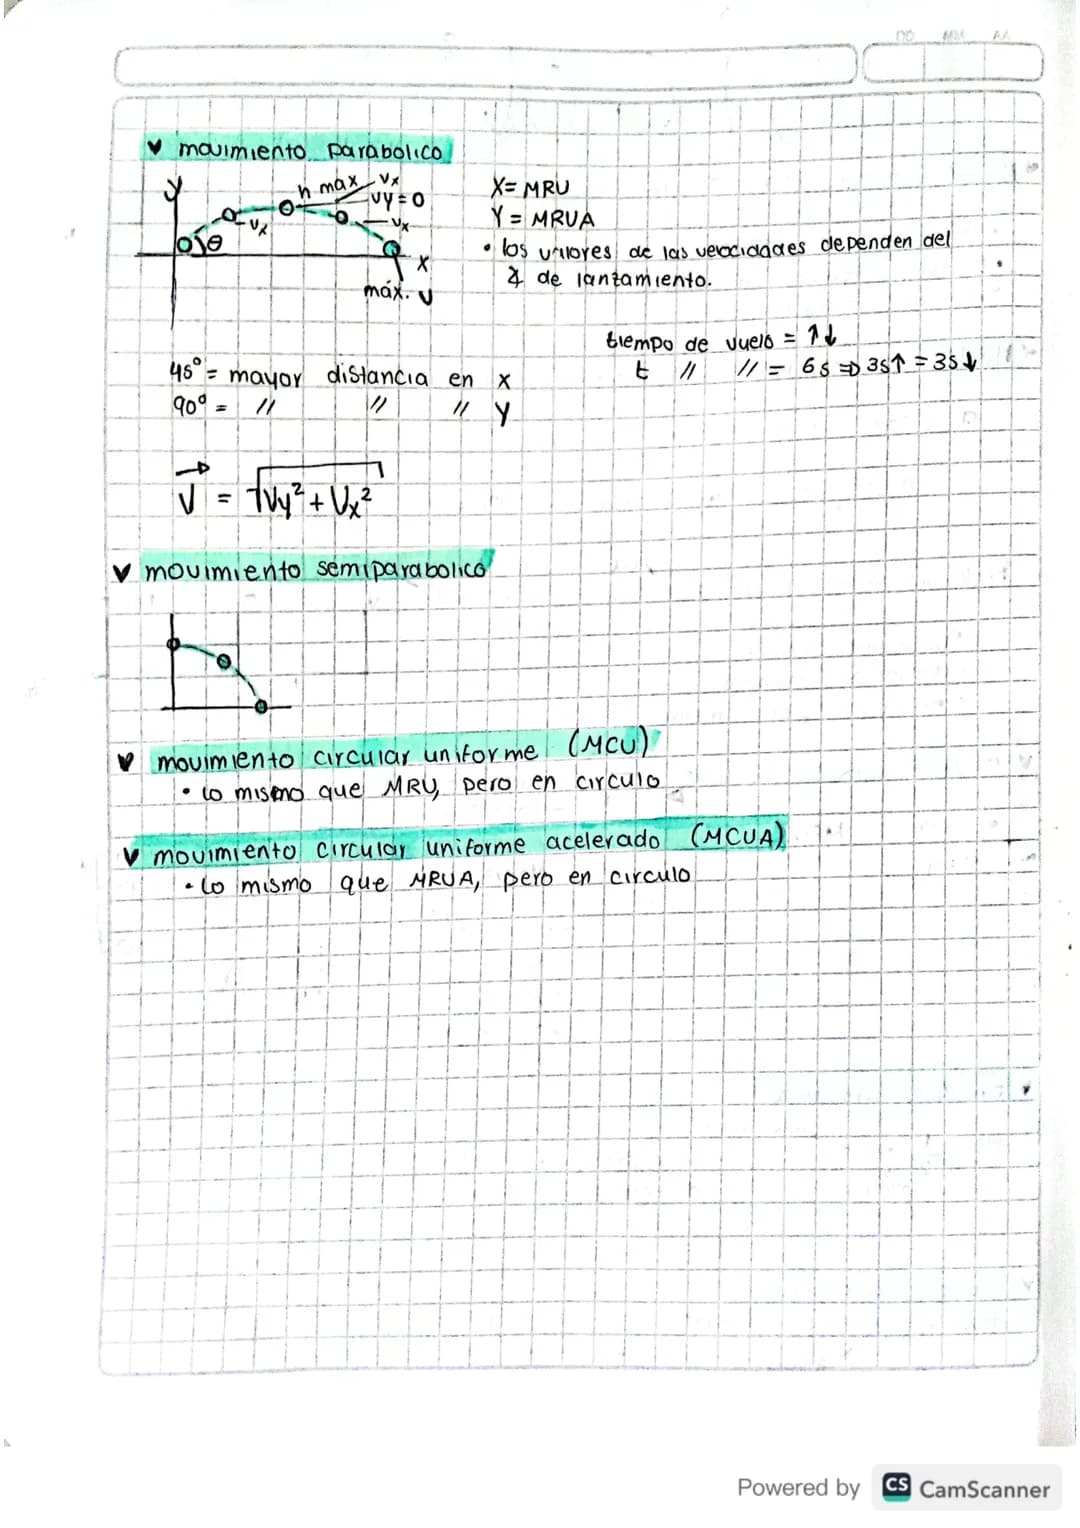 DD MM AA
movimiento parabolico
y
h max Vx
Vy=0
Vx
Vx
θ
x
máx. v
X= MRU
Y = MRUA
• los valores de las velocidades dependen del
∡ de lanzamiento.
tiempo de vuelo = ↑↓
t // // = 6s ⇒ 3s↑ = 3s↓
45° = mayor distancia en x
90° = // // // Y
V = √Vy²+Vx²
movimiento semiparabolico
movimiento circular uniforme (MCU)
• lo mismo que MRU, pero en circulo
movimiento circular uniforme acelerado (MCUA)
• lo mismo que MRUA, pero en circulo
Powered by CS CamScanner